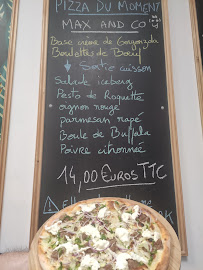 PIZZA DU MOMENT
MAX AND CO
Base crème de Gorgonzola
Boulettes de Boeuf
Sortie cuisson
Salade iceberg
Pesto de Roquette
oignon rouge
parmesan rapé
Boule de Buffala
Poivre citronnée
14,00 Euros TTC